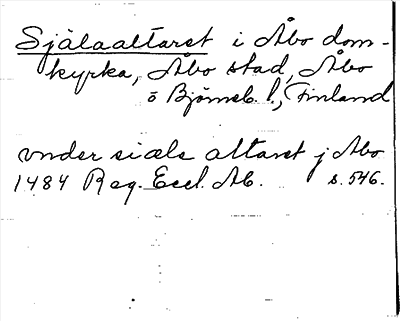 Själaaltaret i Åbo dom-
kyrka, Åbo stad, Åbo
o Björneb. l., Finland
vnder siæls altaret j Abo
1484 Reg. Eccl. Ab. s. 546.